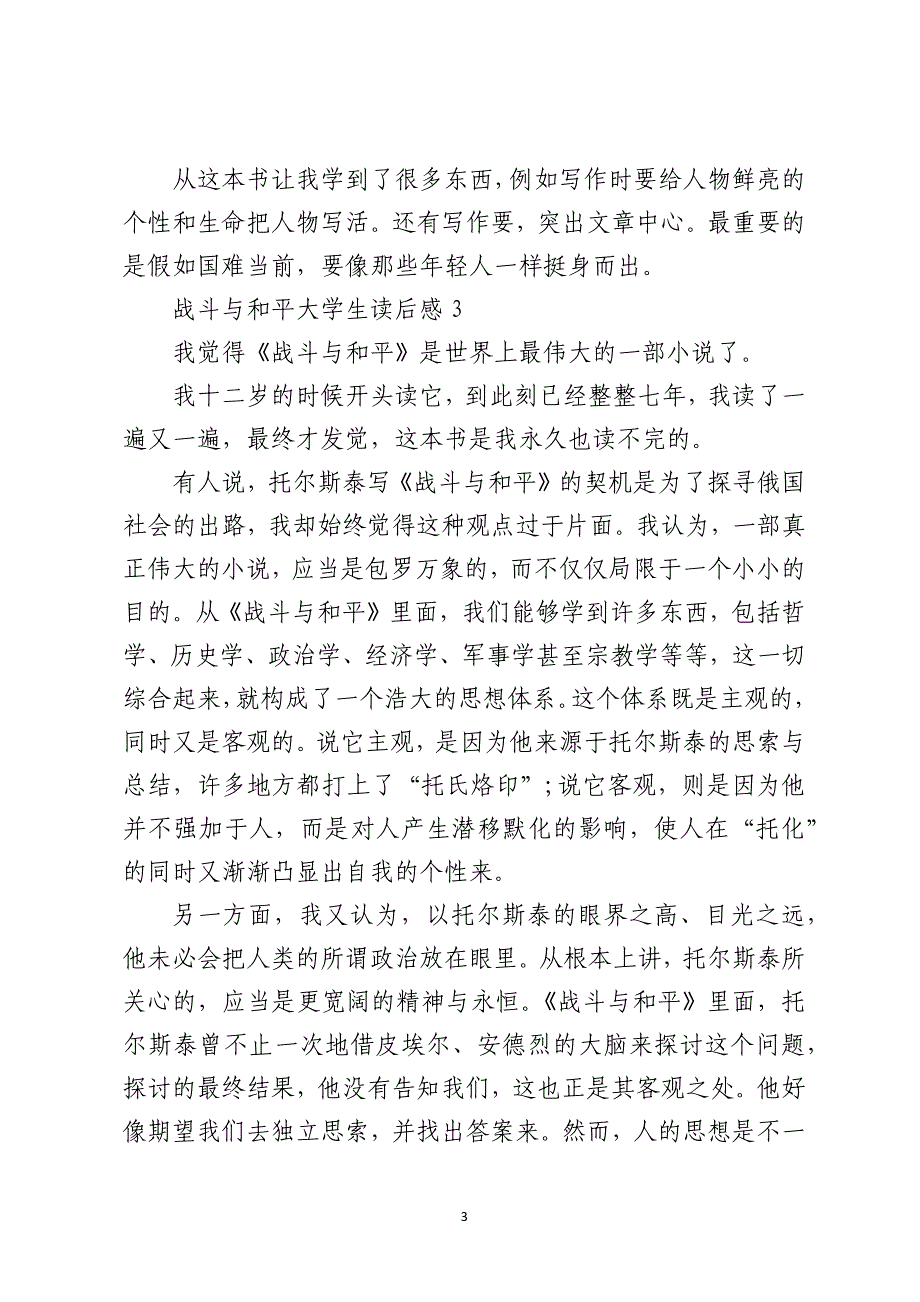 从这本书让我学到了很多东西，例如写作时要给人物鲜亮的
个性和生命把人物写活。还有写作要，突出文章中心。最重要的
是假如国难当前，要像那些年轻人一样挺身而出。
战斗与和平大学生读后感 3
我觉得《战斗与和平》是世界上最伟大的一部小说了。
我十二岁的时候开头读它，到此刻已经整整七年，我读了一
遍又一遍，最终才发觉，这本书是我永久也读不完的。
有人说，托尔斯泰写《战斗与和平》的契机是为了探寻俄国
社会的出路，我却始终觉得这种观点过于片面。我认为，一部真
正伟大的小说，应当是包罗万象的，而不仅仅局限于一个小小的
目的。从《战斗与和平》里面，我们能够学到许多东西，包括哲
学、历史学、政治学、经济学、军事学甚至宗教学等等，这一切
综合起来，就构成了一个浩大的思想体系。这个体系既是主观的，
同时又是客观的。说它主观，是因为他来源于托尔斯泰的思索与
总结，许多地方都打上了“托氏烙印”；说它客观，则是因为他
并不强加于人，而是对人产生潜移默化的影响，使人在“托化”
的同时又渐渐凸显出自我的个性来。
另一方面，我又认为，以托尔斯泰的眼界之高、目光之远，
他未必会把人类的所谓政治放在眼里。从根本上讲，托尔斯泰所
关心的，应当是更宽阔的精神与永恒。《战斗与和平》里面，托
尔斯泰曾不止一次地借皮埃尔、安德烈的大脑来探讨这个问题，
探讨的最终结果，他没有告知我们，这也正是其客观之处。他好
像期望我们去独立思索，并找出答案来。然而，人的思想是不一
3